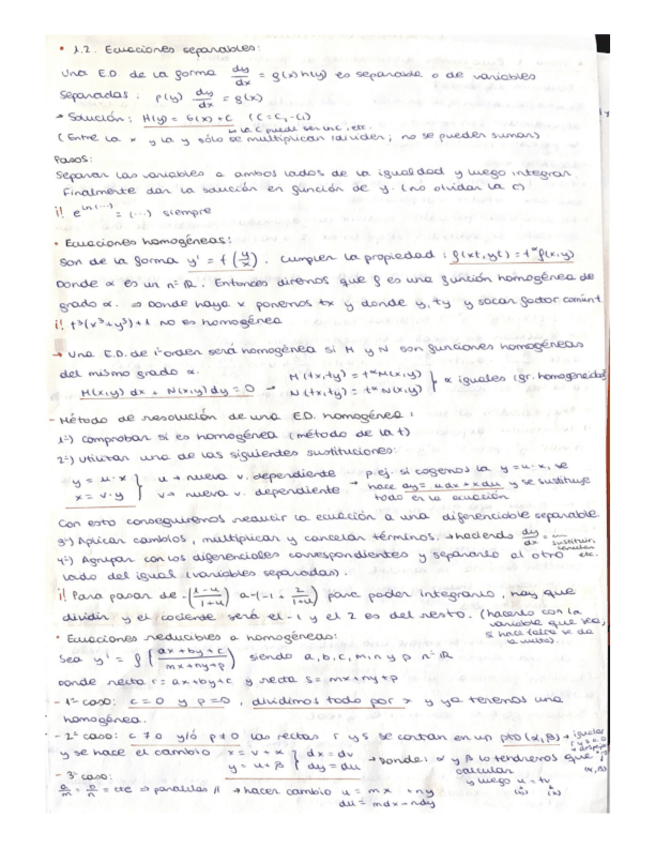 • 1.2. Ecuaciones separables:
Una E.D. de la forma dy/dx = g(x)h(y) es separable o de variables
separadas: p(y) dy/dx = g(x)
→ Solución: H(y) = G(x) + C (C = C₂ - C₁)
↳ la C puede ser lnC, etc.
(Entre la x y la y sólo se multiplican/dividen; no se pueden sumar)
Pasos:
Separar las variables a ambos lados de la igualdad y luego integrar.
Finalmente dar la solución en función de y. (no olvidar la C)
¡! e^ln(...) = (...) siempre
• Ecuaciones homogéneas:
Son de la forma y' = f(y/x). Cumplen la propiedad: f(xt, yt) = t^α f(x,y)
Donde α es un nº ℝ. Entonces diremos que f es una función homogénea de
grado α. ⇒ Donde haya x ponemos tx y donde y, ty y sacar factor común t
¡! t³(x³+y³)+1 no es homogénea
→ Una E.D. de 1º orden será homogénea si M y N son funciones homogéneas
del mismo grado α.
M(x,y) dx + N(x,y) dy = 0 → M(tx,ty) = t^α M(x,y) N(tx,ty) = t^α N(x,y) } α iguales (gr. homogeneidad)
- Método de resolución de una E.D. homogénea:
1º) Comprobar si es homogénea (método de la t)
2º) Utilizar una de las siguientes sustituciones:
y = u·x } u → nueva v. dependiente p.ej. si cogemos la y = u·x, se
x = v·y v → nueva v. dependiente → hace dy = udx + xdu y se sustituye
todo en la ecuación
Con esto conseguiremos reducir la ecuación a una diferenciable separable.
3º) Aplicar cambios, multiplicar y cancelar términos. → haciendo dy/dx = ... sustituir,
4º) Agrupar con los diferenciales correspondientes y separarlo al otro etc.
lado del igual (variables separadas).
¡! Para pasar de -(1-u/1+u) a -(-1 + 2/1+u) para poder integrarlo, hay que
dividir y el cociente será el -1 y el 2 es del resto. (hacerlo con la
variable que sea,
si hace falta se da
la vuelta).
• Ecuaciones reducibles a homogéneas:
Sea y' = f(ax+by+c/mx+ny+p) siendo a, b, c, m, n y p nº ℝ
Donde recta r = ax+by+c y recta s = mx+ny+p
- 1º caso: c = 0 y p = 0, dividimos todo por x y ya tenemos una
homogénea.
- 2º caso: c ≠ 0 y/ó p ≠ 0 las rectas r y s se cortan en un pto (α,β) → igualar
r y s a 0
y se hace el cambio x = v + α } dx = dv → Donde: α y β lo tendremos que
y = u + β dy = du calcular (α,β)
y luego u = tv
- 3º caso:
a/m = b/n = cte ⇒ paralelas // → hacer cambio u = mx + ny
du = mdx + ndy